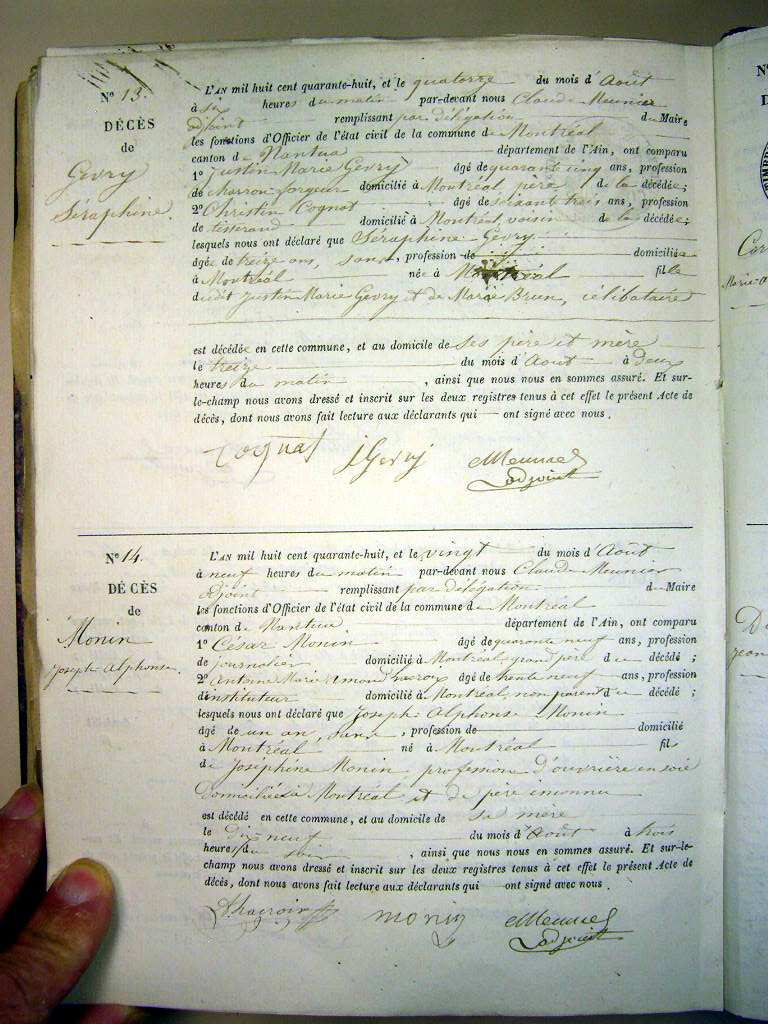 N° 13.
DÉCÈS
de
Gevry
Séraphine.
L'AN mil huit cent quarante-huit, et le quatorze du mois d'Août
à six heures du matin par-devant nous Claude Meunier
adjoint remplissant par délégation du Maire
les fonctions d'Officier de l'état civil de la commune de Montréal
canton de Nantua département de l'Ain, ont comparu
1° Justin Marie Gevry âgé de quarante cinq ans, profession
de charron-forgeur domicilié à Montréal, père de la décédée;
2° Christin Cognat âgé de soixante trois ans, profession
de tisserand domicilié à Montréal, voisin de la décédée;
lesquels nous ont déclaré que Séraphine Gevry
âgée de treize ans, sans, profession de domiciliée
à Montréal née à Montréal fille
dudit Justin Marie Gevry et de Marie Brun, célibataire
est décédée en cette commune, et au domicile de ses père et mère
le treize du mois d'Août à deux
heures du matin, ainsi que nous nous en sommes assuré. Et sur-
le-champ nous avons dressé et inscrit sur les deux registres tenus à cet effet le présent Acte de
décès, dont nous avons fait lecture aux déclarants qui ont signé avec nous.
Cognat JGevry CMeunier
adjoint
N° 14.
DÉCÈS
de
Monin
Joseph Alphonse.
L'AN mil huit cent quarante-huit, et le vingt du mois d'Août
à neuf heures du matin par-devant nous Claude Meunier
adjoint remplissant par délégation du Maire
les fonctions d'Officier de l'état civil de la commune de Montréal
canton de Nantua département de l'Ain, ont comparu
1° César Monin âgé de quarante neuf ans, profession
de journalier domicilié à Montréal, grand père du décédé;
2° Antoine Marie âgé de trente neuf ans, profession
d'instituteur domicilié à Montréal, non parent du décédé;
lesquels nous ont déclaré que Joseph Alphonse Monin
âgé de un an, sans, profession de domicilié
à Montréal né à Montréal fils
de Joséphine Monin, profession d'ouvrière en soie
domiciliée à Montréal et de père inconnu
est décédé en cette commune, et au domicile de sa mère
le dix-neuf du mois d'Août à trois
heures du soir, ainsi que nous nous en sommes assuré. Et sur-le-
champ nous avons dressé et inscrit sur les deux registres tenus à cet effet le présent Acte de
décès, dont nous avons fait lecture aux déclarants qui ont signé avec nous.
monin CMeunier
adjoint